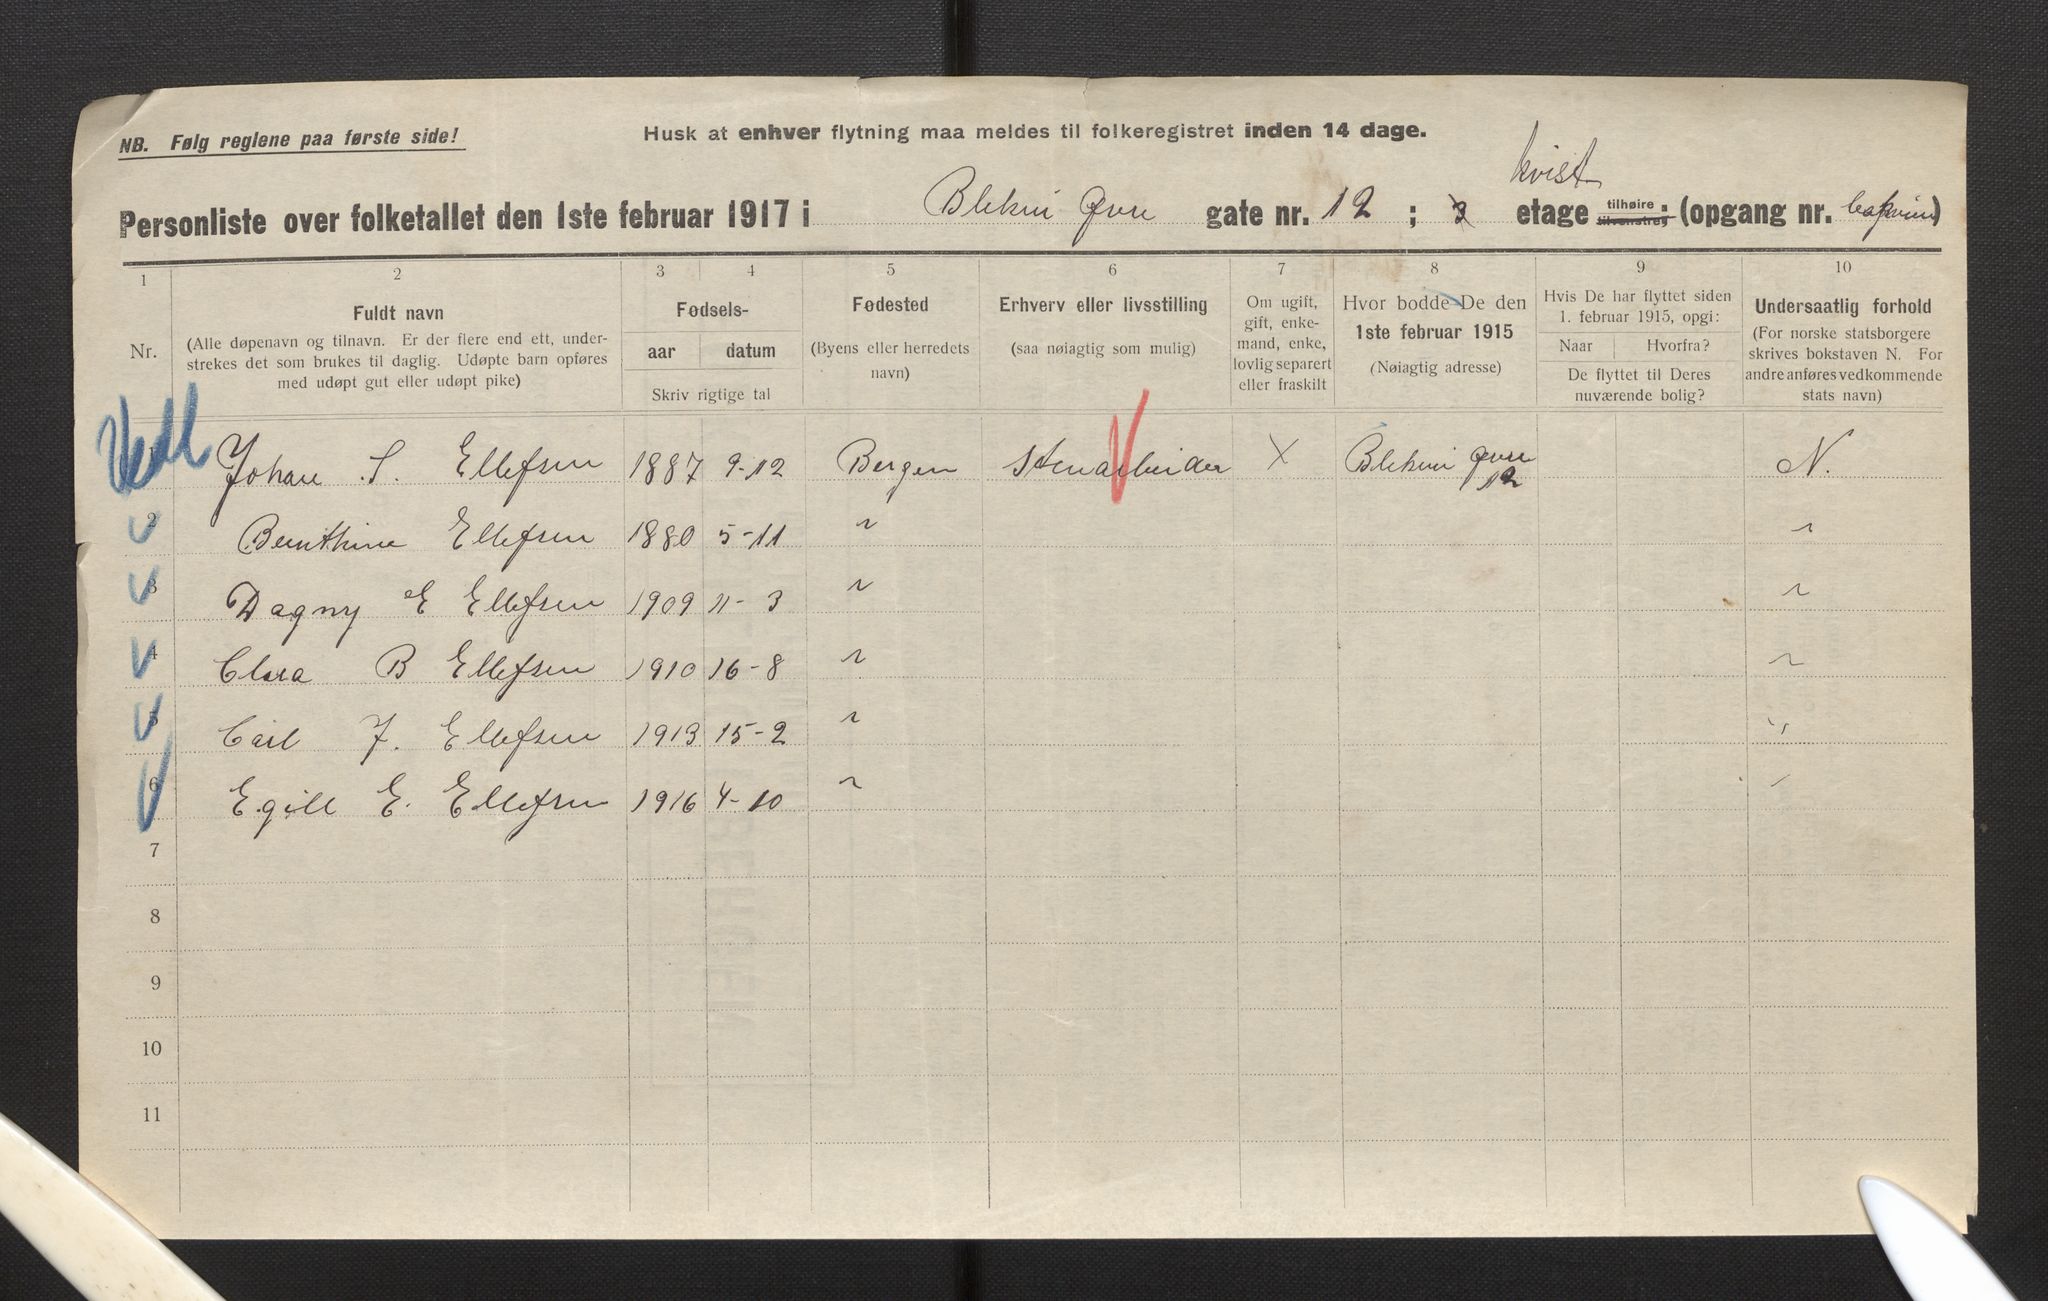 NB. Følg reglene paa første side!
Husk at enhver flytning maa meldes til folkeregistret inden 14 dage.
kvist
Personliste over folketallet den 1ste februar 1917 i Blekevei Øvre gate nr. 12 ; 3 etage tilhøire tilvenstre : (opgang nr. )
1 2 3 4 5 6 7 8 9 10
Nr.
Fuldt navn
(Alle døpenavn og tilnavn. Er der flere end ett, under-
strekes det som brukes til daglig. Udøpte barn opføres
med udøpt gut eller udøpt pike)
Fødsels-
aar datum
Skriv rigtige tal
Fødested
(Byens eller herredets
navn)
Erhverv eller livsstilling
(saa nøiagtig som mulig)
Om ugift,
gift, enke-
mand, enke,
lovlig separert
eller fraskilt
Hvor bodde De den
1ste februar 1915
(Nøiagtig adresse)
Hvis De har flyttet siden
1. februar 1915, opgi:
Naar Hvorfra?
De flyttet til Deres
nuværende bolig?
Undersaatlig forhold
(For norske statsborgere
skrives bokstaven N. For
andre anføres vedkommende
stats navn)
Johan S. Ellefsen 1887 9-12 Bergen Stenarbeider X Blekevei Øvre 12 N.
2 Bernthine Ellefsen 1880 5-11 " "
3 Dagny E Ellefsen 1909 11-3 " "
4 Clara B Ellefsen 1910 16-8 " "
5 Carl J. Ellefsen 1913 15-2 " "
6 Egill E. Ellefsen 1916 4-10 " "
7
8
9
10
11